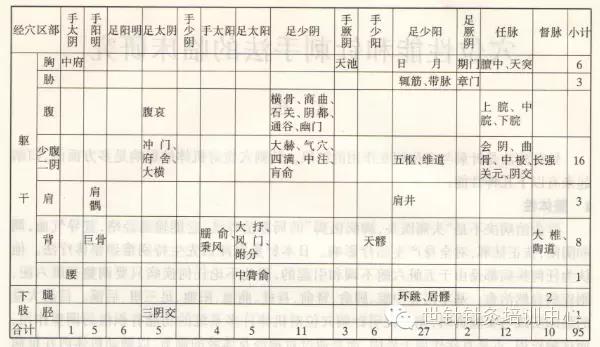 经穴区部 手太阴 手阳明 足阳明 足太阴 手少阴 手太阳 足太阳 足少阴 手厥阴 手少阳 足少阳 足厥阴 任脉 督脉 小计
躯干
胸 中府 天池 日月 期门 膻中、天突 6
胁 辄筋、带脉 章门 3
腹 腹哀 横骨、商曲、石关、阴都、通谷、幽门 上脘、中脘、下脘
少腹二阴 冲门、府舍、大横 大赫、气穴、四满、中注、肓俞 五枢、维道 会阴、曲骨、中极、关元、阴交 长强 16
肩 肩髃 肩井 3
背 巨骨 臑俞、秉风 大抒、风门、附分 天髎 大椎、陶道 8
腰 中膂俞
下肢
腿 环跳、居髎 2
胫 三阴交 1
合计 1 5 6 5 4 5 11 3 6 27 2 12 10 95
世针针灸培训中心